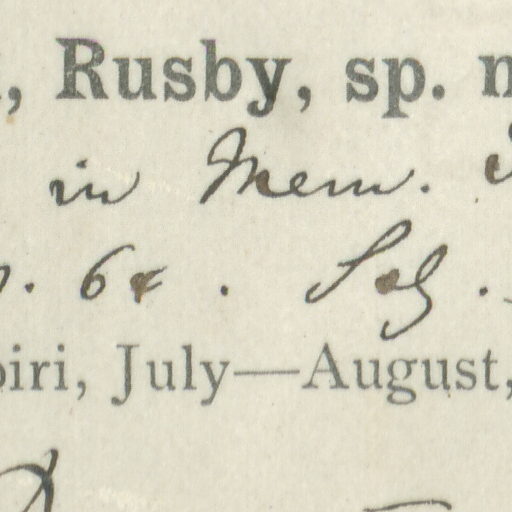 , Rusby, sp. n
in Mem.
. 64 .
iri, July—August,